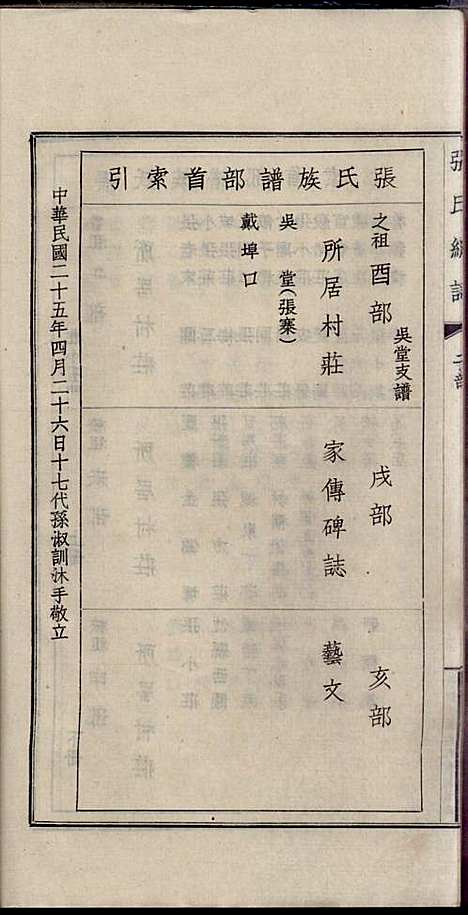 張氏族譜部首索引
之祖 酉部 吳堂支譜
所居村莊
吳　堂（張寨）
戴埠口
戌部
家傳碑誌
亥部
藝文
中華民國二十五年四月二十六日十七代孫淑訓沐手敬立
張氏